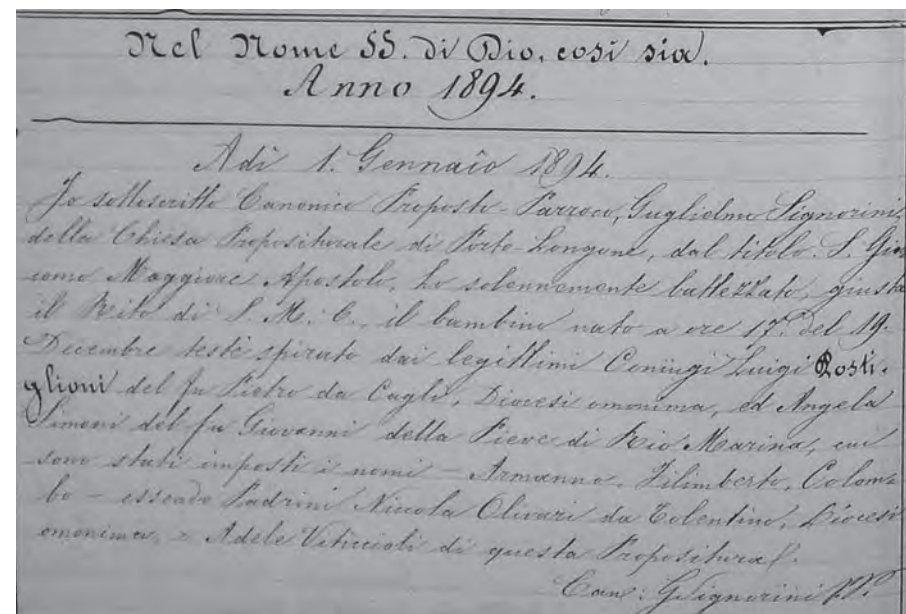 Nel Nome SS. di Dio, così sia.
Anno 1894.
Adì 1. Gennaio 1894.
Io sottoscritto Canonico Proposto-Parroco, Guglielmo Signorini,
della Chiesa Propositurale di Porto-Longone, dal titolo S. Gia
como Maggiore Apostolo, ho solennemente battezzato, giusta
il Rito di S. M. C., il bambino nato a ore 17. del 19.
Decembre testè spirato dai legittimi Coniugi Luigi Rosti-
glioni del fu Pietro da Cagli, Diocesi omonima, ed Angela
Simoni del fu Giovanni della Pieve di Rio Marina, cui
sono stati imposti i nomi - Armanno, Filimberto, Colom=
bo - essendo Padrini Niccola Olivari da Tolentino, Diocesi
omonima, e Adele Viticcioli di questa Propositura.
Can: G. Signorini P.P.